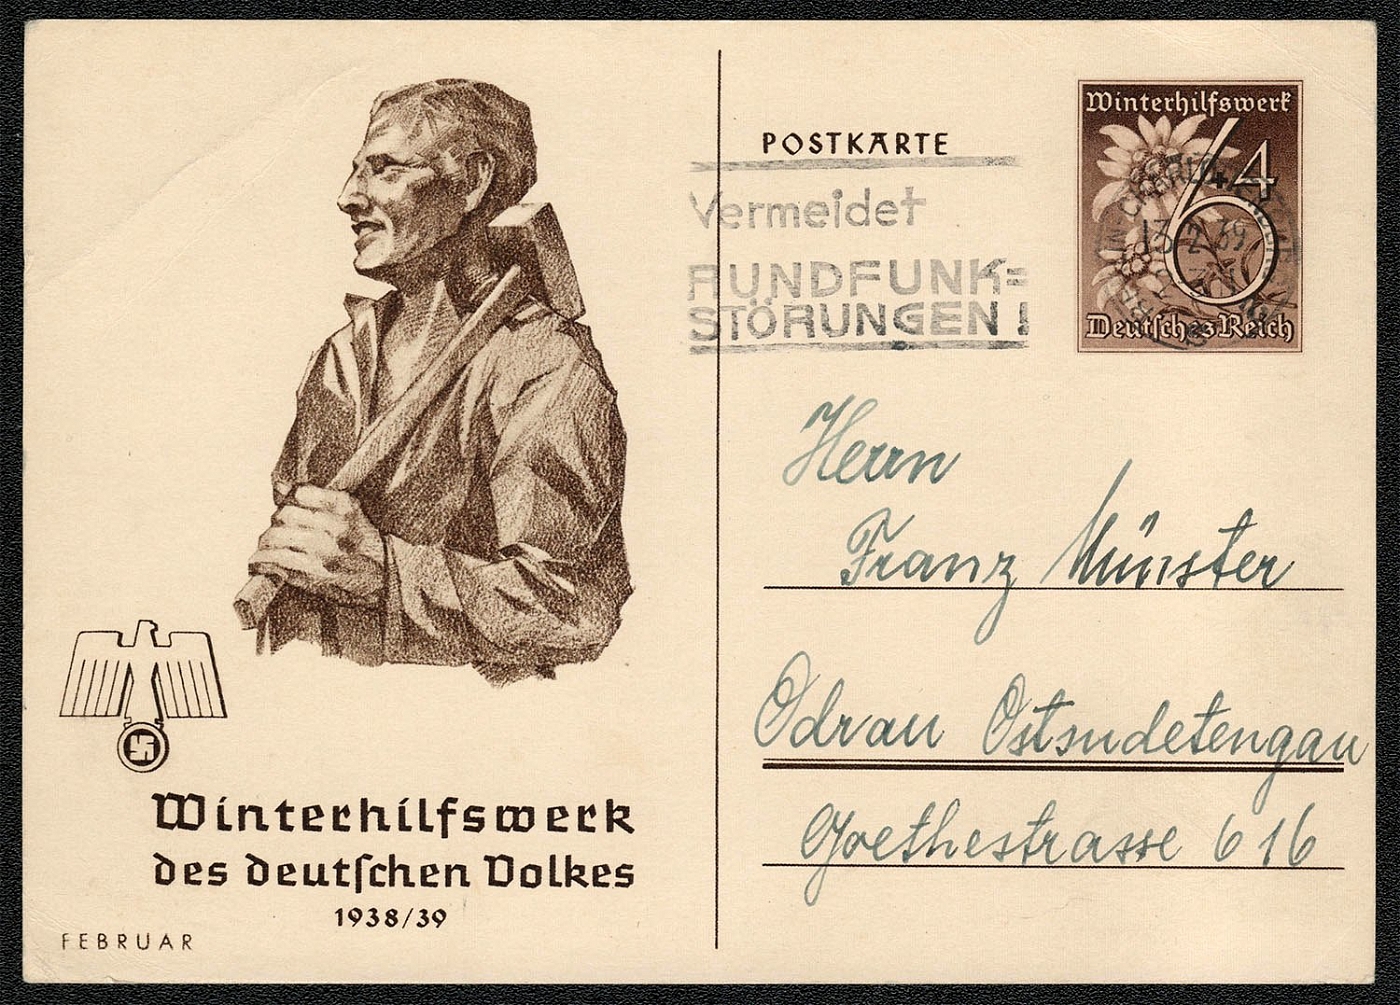 Winterhilfswerk
des deutſchen Volkes
1938/39
FEBRUAR
POSTKARTE
Vermeidet
RUNDFUNK=
STÖRUNGEN!
Winterhilfswerk
6+4
Deutſches Reich
13.2.39
Herrn
Franz Münster
Odrau Ostsudetengau
Goethestrasse 616